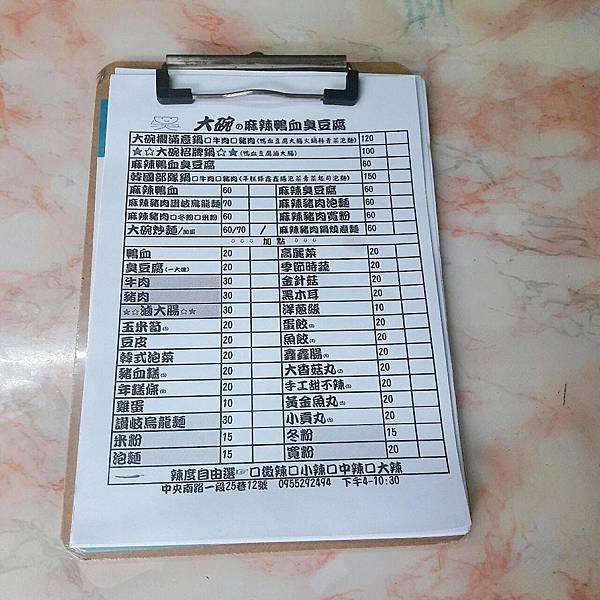 大碗の麻辣鴨血臭豆腐
大碗獨滿意鍋□牛肉□豬肉(鴨血豆腐大腸火鍋料青菜泡麵) 120
☆☆大碗招牌鍋☆☆(鴨血豆腐滷大腸) 100
麻辣鴨血臭豆腐 80
韓國部隊鍋□牛肉□豬肉(年糕條鑫鑫腸泡菜青菜起司泡麵) 150
麻辣鴨血 60 麻辣臭豆腐 60
麻辣豬肉讚岐烏龍麵 70 麻辣豬肉泡麵 60
麻辣豬肉□冬粉□米粉 60 麻辣豬肉寬粉 60
大碗炒麵/加蛋 60/70 / 麻辣豬肉鍋燒意麵 60
○○○ 加點 ○○○
鴨血 20 高麗菜 20
臭豆腐(一大塊) 20 季節時蔬 20
牛肉 30 金針菇 20
豬肉 30 黑木耳 20
☆☆滷大腸☆☆ 30 洋蔥絲 10
玉米筍(5) 20 蛋餃(3) 20
豆皮 20 魚餃(4) 20
韓式泡菜 20 鑫鑫腸(6) 20
豬血糕(5) 20 大香菇丸(2) 20
年糕條(8) 20 手工甜不辣(5) 20
雞蛋 10 黃金魚丸(5) 20
讚岐烏龍麵 30 小貢丸(5) 20
米粉 15 冬粉 15
泡麵 15 寬粉 20
辣度自由選☞□微辣□小辣□中辣□大辣
中央南路一段25巷12號 0955292494 下午4-10:30